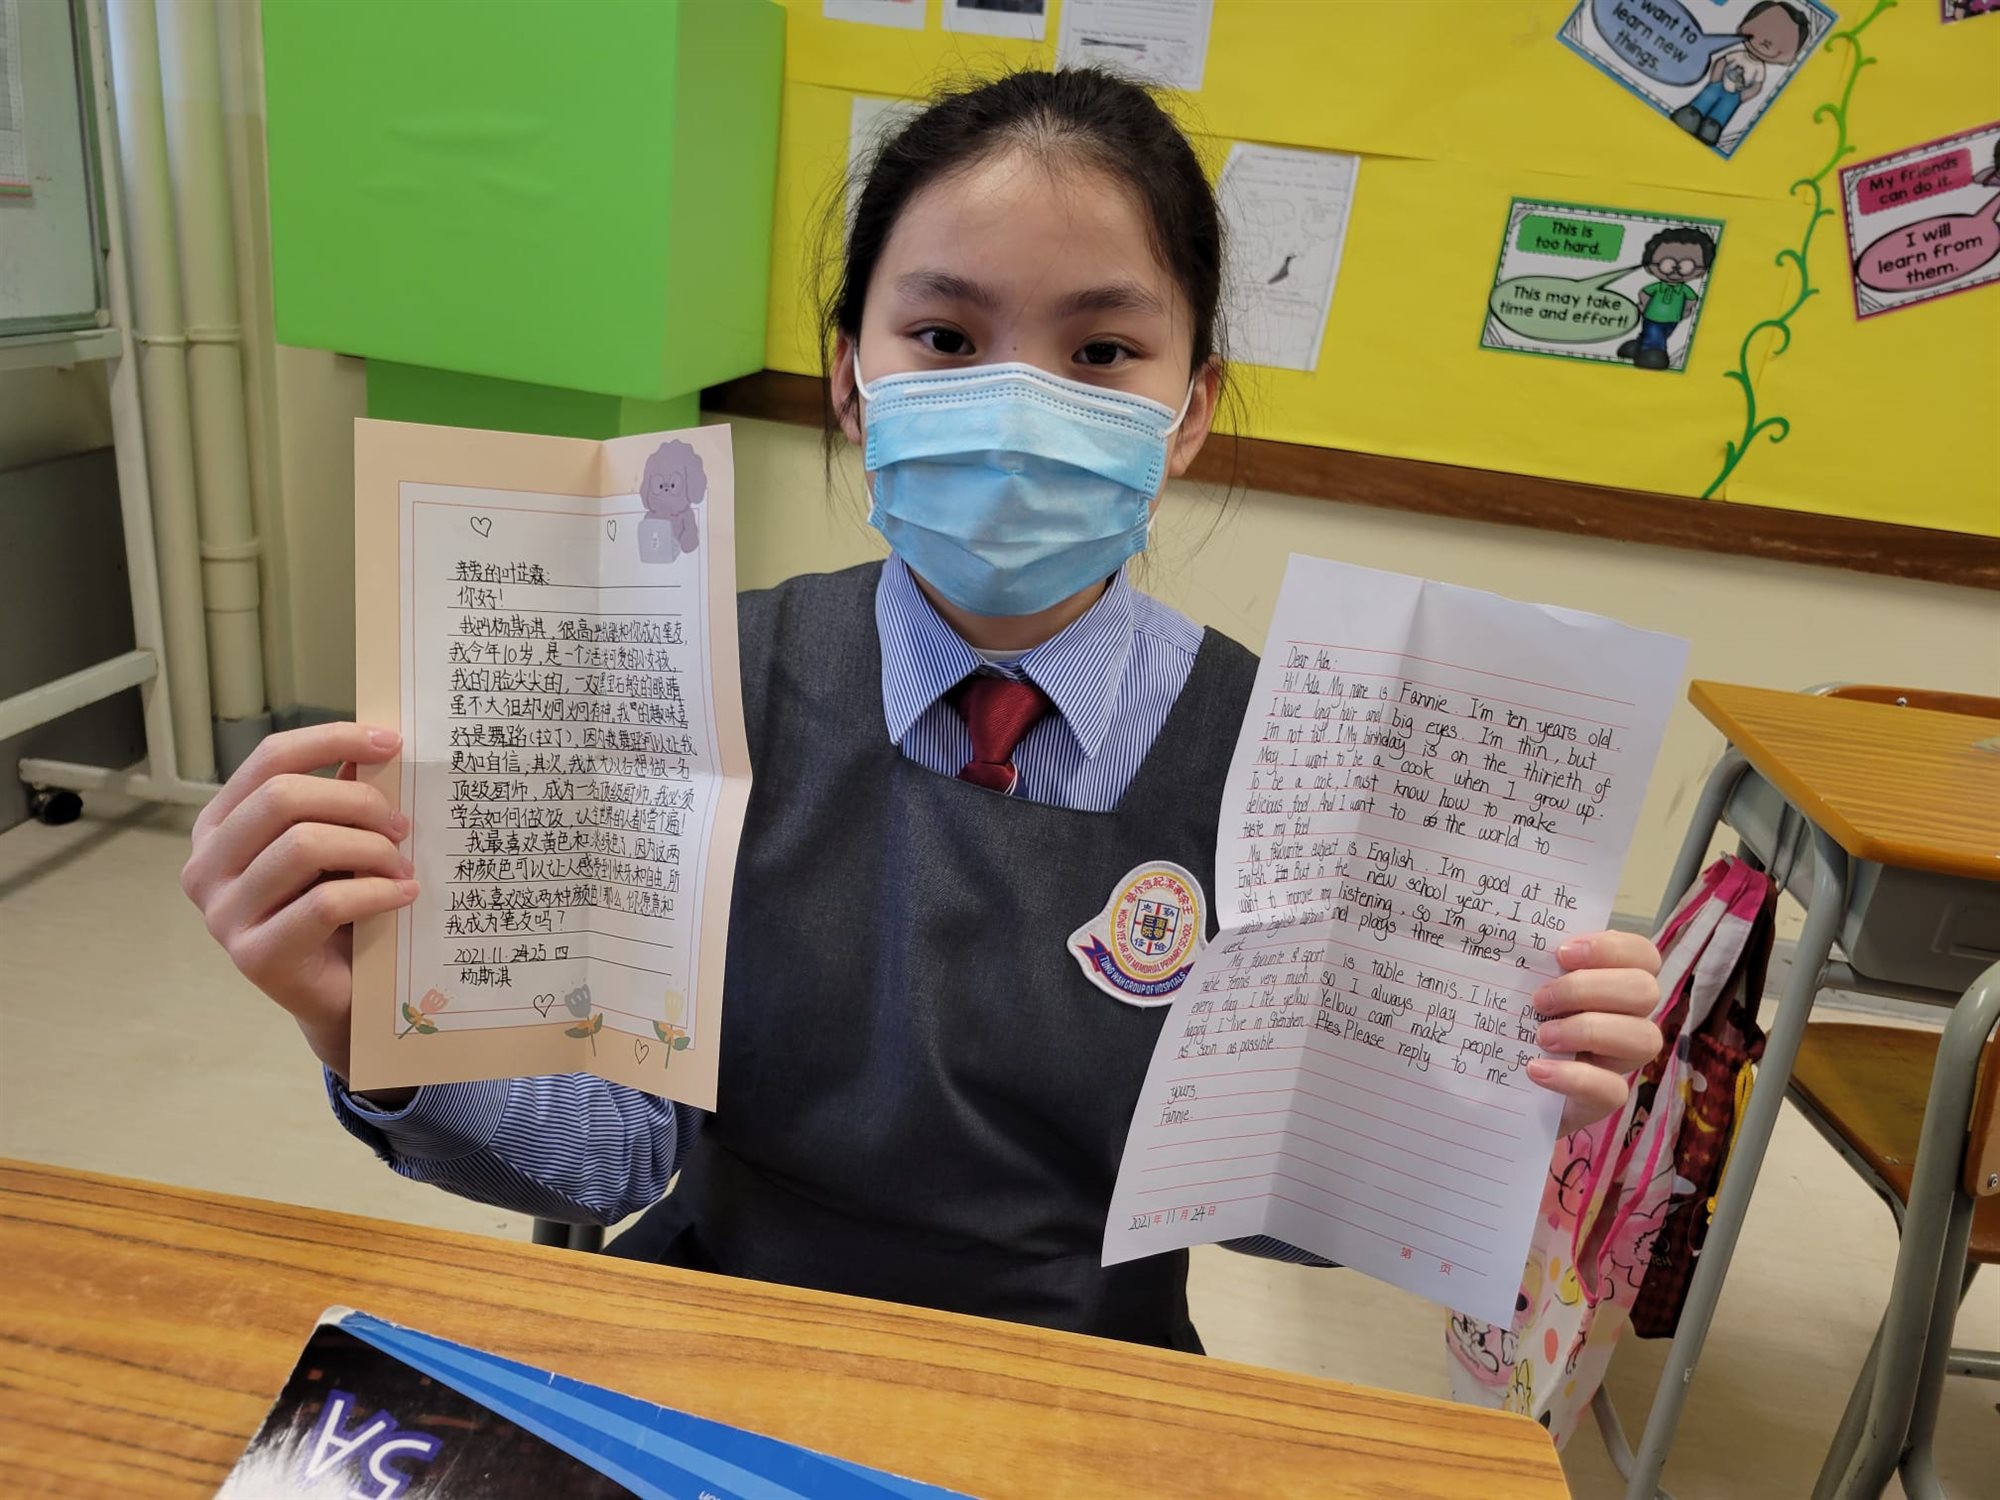 亲爱的叶芷霖:
你好!
我叫杨斯淇,很高兴能和你成为笔友,
我今年10岁,是一个活泼可爱的小女孩,
我的脸尖尖的,一双黑宝石般的眼睛
虽不大但却炯炯有神,我的趣味喜
好是舞蹈(拉丁),因为我舞蹈可以让我
更加自信;其次,我长大以后想做一名
顶级厨师,成为一名顶级厨师,我必须
学会如何做饭,让全世界的人都尝个遍!
我最喜欢黄色和淡绿色了,因为这两
种颜色可以让人感受到快乐和自由,所
以我喜欢这两种颜色!那么,你愿意和
我成为笔友吗?
2021.11.25 四
杨斯淇
Dear Ada:
Hi! Ada. My name is Fannie. I'm ten years old.
I have long hair and big eyes. I'm thin, but
I'm not tall. My birthday is on the thirieth of
May. I want to be a cook when I grow up.
To be a cook, I must know how to make
delicious food. And I want to the world to
taste my food.
My favourite subject is English. I'm good at the
English. But in the new school year, I also
want to improve my listening, so I'm going to
watch English and plays three times a
week.
My favourite sport is table tennis. I like
table tennis very much so I always play table
every day. I like yellow. Yellow can make people
happy. I live in Shenzhen. Please reply to me
as soon as possible.
yours,
Fannie.
2021年11月24日
第 页
I want to
learn new
things.
This is
too hard.
This may take
time and effort!
My friends
can do it.
I will
learn from
them.
WONG YEE JAR JAT MEMORIAL PRIMARY SCHOOL
TUNG WAH GROUP OF HOSPITALS
5A